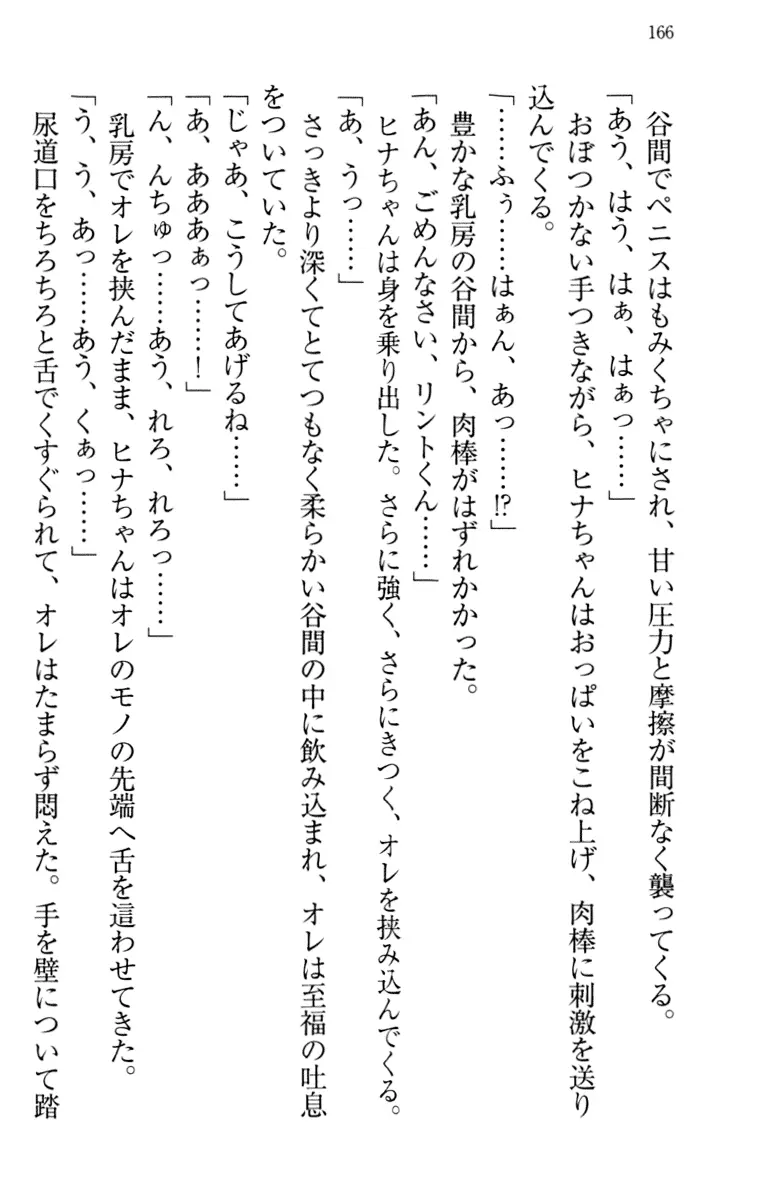 166
谷間でペニスはもみくちゃにされ、甘い圧力と摩擦が間断なく襲ってくる。
「あう、はう、はぁ、はぁっ……」
おぼつかない手つきながら、ヒナちゃんはおっぱいをこね上げ、肉棒に刺激を送り
込んでくる。
「……ふぅ……はぁん、あっ……!?」
豊かな乳房の谷間から、肉棒がはずれかかった。
「あん、ごめんなさい、リントくん……」
ヒナちゃんは身を乗り出した。さらに強く、さらにきつく、オレを挟み込んでくる。
「あ、うっ……」
さっきより深くてとてつもなく柔らかい谷間の中に飲み込まれ、オレは至福の吐息
をついていた。
「じゃあ、こうしてあげるね……」
「あ、あああぁっ……!」
「ん、んちゅっ……あう、れろ、れろっ……」
乳房でオレを挟んだまま、ヒナちゃんはオレのモノの先端へ舌を這わせてきた。
「う、う、あっ……あう、くぁっ……」
尿道口をちろちろと舌でくすぐられて、オレはたまらず悶えた。手を壁について踏